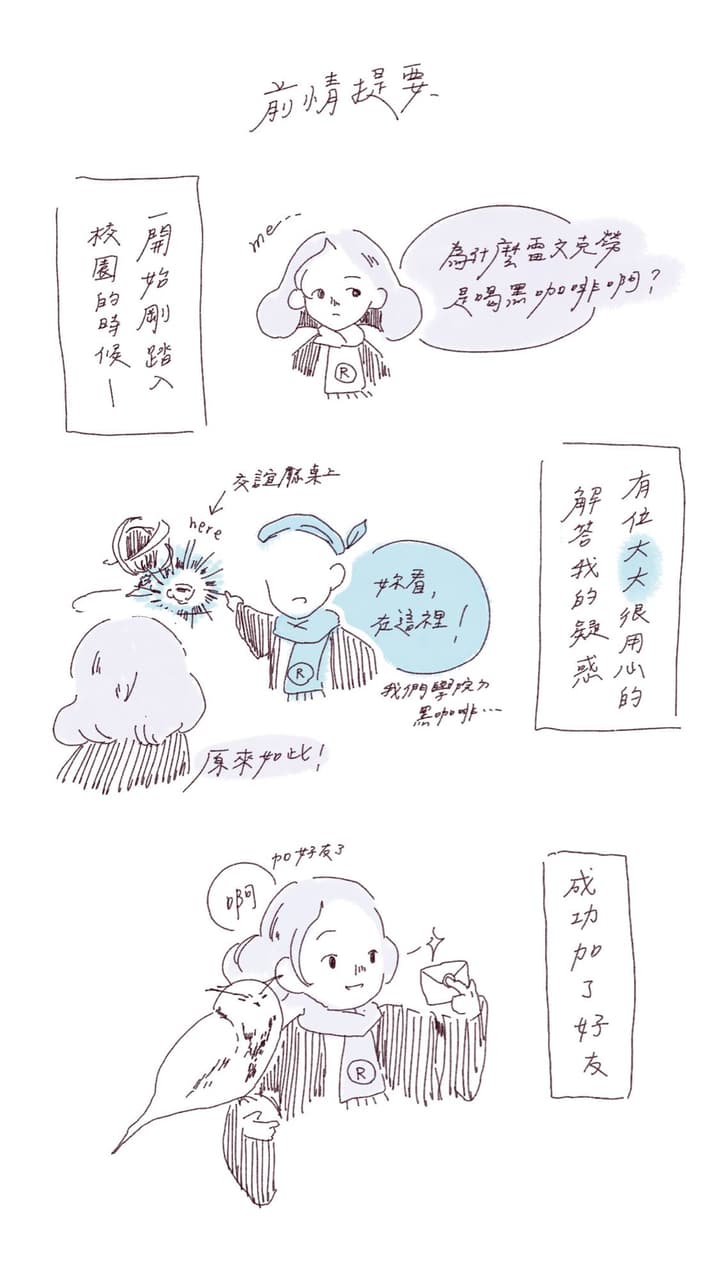 前情提要
一開始剛踏入
校園的時候—
me...
為什麼雷文克勞
是喝黑咖啡啊？
R
有位大大很用心的
解答我的疑惑
交誼廳桌上
here
妳看，
在這裡！
R
我們學院ㄉ
黑咖啡...
原來如此！
成功加了好友
加好友了
啊
R